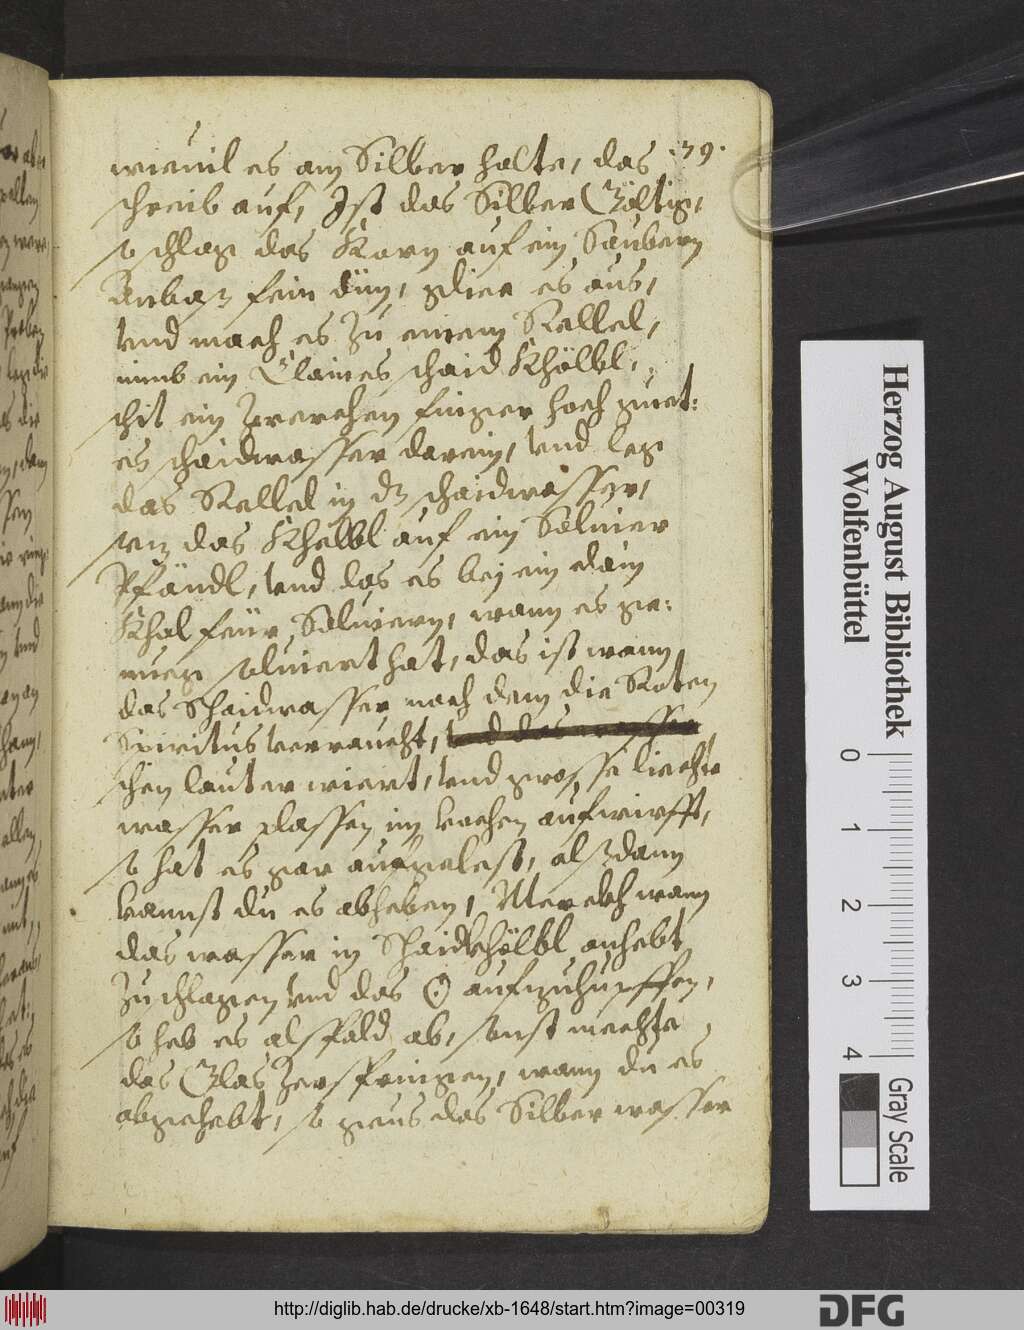 .79.
wieuil es am Silber halte, das
schreib auf, Ist das Silber Göltig,
so schlag das Korn auf ein Saubern
Anbaß fein dün, gliee es aus,
vnd mach es zu einem Rellel,
nimb ein Claines schaid Khölbl,
schit ein zwerchen finger hoch guet:
es schaidwasser darein, vnd leg
das Rellel in dz schaidwasser,
sez das Khelbl auf ein Soluier
Pfändl, vnd las es bej ein clain
Khol feür Soluiern, wann es ge:
nueg soluiert hat, das ist wann
das Schaidwasser nach dem die Roten
Spiritus verraucht, vnd das wasser
schen lauter wiert, vnd grosse liechte
wasser plassen im kochen aufwirfft,
so hat es gar aufgelest, alßdann
kannst du es abheben, Merckh wann
das wasser in Schaidkhölbl anhebt
zuschlagen vnd das ☉ aufzuhupffen,
so heb es alsspald ab, sonst mechte
das Glas zerspringen, wann du es
abgehebt, so geus das Silber wasser
Herzog August Bibliothek
Wolfenbüttel
0 1 2 3 4
Gray Scale
http://diglib.hab.de/drucke/xb-1648/start.htm?image=00319
DFG